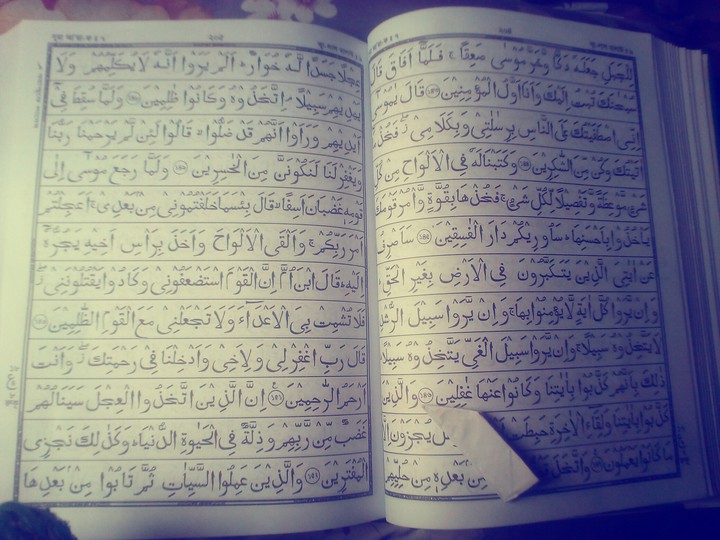 لِلْجَبَلِ جَعَلَهٗ دَكًّا وَّخَرَّ مُوْسٰى صَعِقًا ۚ فَلَمَّآ اَفَاقَ قَالَ
سُبْحٰنَكَ تُبْتُ اِلَيْكَ وَاَنَا اَوَّلُ الْمُؤْمِنِيْنَ ﴿۱۴۳﴾ قَالَ يٰمُوْسٰٓى
اِنِّى اصْطَفَيْتُكَ عَلَى النَّاسِ بِرِسٰلٰتِىْ وَبِكَلَامِىْ ۖ فَخُذْ مَآ
اٰتَيْتُكَ وَكُنْ مِّنَ الشّٰكِرِيْنَ ﴿۱۴۴﴾ وَكَتَبْنَا لَهٗ فِى الْاَلْوَاحِ مِنْ كُلِّ
شَىْءٍ مَّوْعِظَةً وَّتَفْصِيْلًا لِّكُلِّ شَىْءٍ ۚ فَخُذْهَا بِقُوَّةٍ وَّاْمُرْ قَوْمَكَ
يَاْخُذُوْا بِاَحْسَنِهَا ؕ سَاُورِيْكُمْ دَارَ الْفٰسِقِيْنَ ﴿۱۴۵﴾ سَاَصْرِفُ
عَنْ اٰيٰتِىَ الَّذِيْنَ يَتَكَبَّرُوْنَ فِى الْاَرْضِ بِغَيْرِ الْحَقِّ ؕ
وَاِنْ يَّرَوْا كُلَّ اٰيَةٍ لَّا يُؤْمِنُوْا بِهَا ۚ وَاِنْ يَّرَوْا سَبِيْلَ الرُّشْدِ
لَا يَتَّخِذُوْهُ سَبِيْلًا ۚ وَاِنْ يَّرَوْا سَبِيْلَ الْغَىِّ يَتَّخِذُوْهُ سَبِيْلًا ؕ
ذٰلِكَ بِاَنَّهُمْ كَذَّبُوْا بِاٰيٰتِنَا وَكَانُوْا عَنْهَا غٰفِلِيْنَ ﴿۱۴۶﴾ وَالَّذِيْنَ
كَذَّبُوْا بِاٰيٰتِنَا وَلِقَآءِ الْاٰخِرَةِ حَبِطَتْ يُجْزَوْنَ اِلَّا
مَا كَانُوْا يَعْمَلُوْنَ ﴿۱۴۷﴾ وَاتَّخَذَ مِنْۢ بَعْدِهٖ مِنْ حُلِيِّهِمْ
২০৫
عِجْلًا جَسَدًا لَّهٗ خُوَارٌ ؕ اَلَمْ يَرَوْا اَنَّهٗ لَا يُكَلِّمُهُمْ وَلَا
يَهْدِيْهِمْ سَبِيْلًا ۘ اِتَّخَذُوْهُ وَكَانُوْا ظٰلِمِيْنَ ﴿۱۴۸﴾ وَلَمَّا سُقِطَ فِىْٓ
اَيْدِيْهِمْ وَرَاَوْا اَنَّهُمْ قَدْ ضَلُّوْا ۙ قَالُوْا لَئِنْ لَّمْ يَرْحَمْنَا رَبُّنَا
وَيَغْفِرْ لَنَا لَنَكُوْنَنَّ مِنَ الْخٰسِرِيْنَ ﴿۱۴۹﴾ وَلَمَّا رَجَعَ مُوْسٰٓى اِلٰى
قَوْمِهٖ غَضْبَانَ اَسِفًا ۙ قَالَ بِئْسَمَا خَلَفْتُمُوْنِىْ مِنْۢ بَعْدِىْ ۚ اَعَجِلْتُمْ
اَمْرَ رَبِّكُمْ ۚ وَاَلْقَى الْاَلْوَاحَ وَاَخَذَ بِرَاْسِ اَخِيْهِ يَجُرُّهٗٓ
اِلَيْهِ ؕ قَالَ ابْنَ اُمَّ اِنَّ الْقَوْمَ اسْتَضْعَفُوْنِىْ وَكَادُوْا يَقْتُلُوْنَنِىْ ۖ
فَلَا تُشْمِتْ بِىَ الْاَعْدَآءَ وَلَا تَجْعَلْنِىْ مَعَ الْقَوْمِ الظّٰلِمِيْنَ ﴿۱۵۰﴾
قَالَ رَبِّ اغْفِرْ لِىْ وَلِاَخِىْ وَاَدْخِلْنَا فِىْ رَحْمَتِكَ ۖ وَاَنْتَ
اَرْحَمُ الرّٰحِمِيْنَ ﴿۱۵۱﴾ اِنَّ الَّذِيْنَ اتَّخَذُوا الْعِجْلَ سَيَنَالُهُمْ
غَضَبٌ مِّنْ رَّبِّهِمْ وَذِلَّةٌ فِى الْحَيٰوةِ الدُّنْيَا ؕ وَكَذٰلِكَ نَجْزِى
الْمُفْتَرِيْنَ ﴿۱۵۲﴾ وَالَّذِيْنَ عَمِلُوا السَّيِّاٰتِ ثُمَّ تَابُوْا مِنْۢ بَعْدِهَا